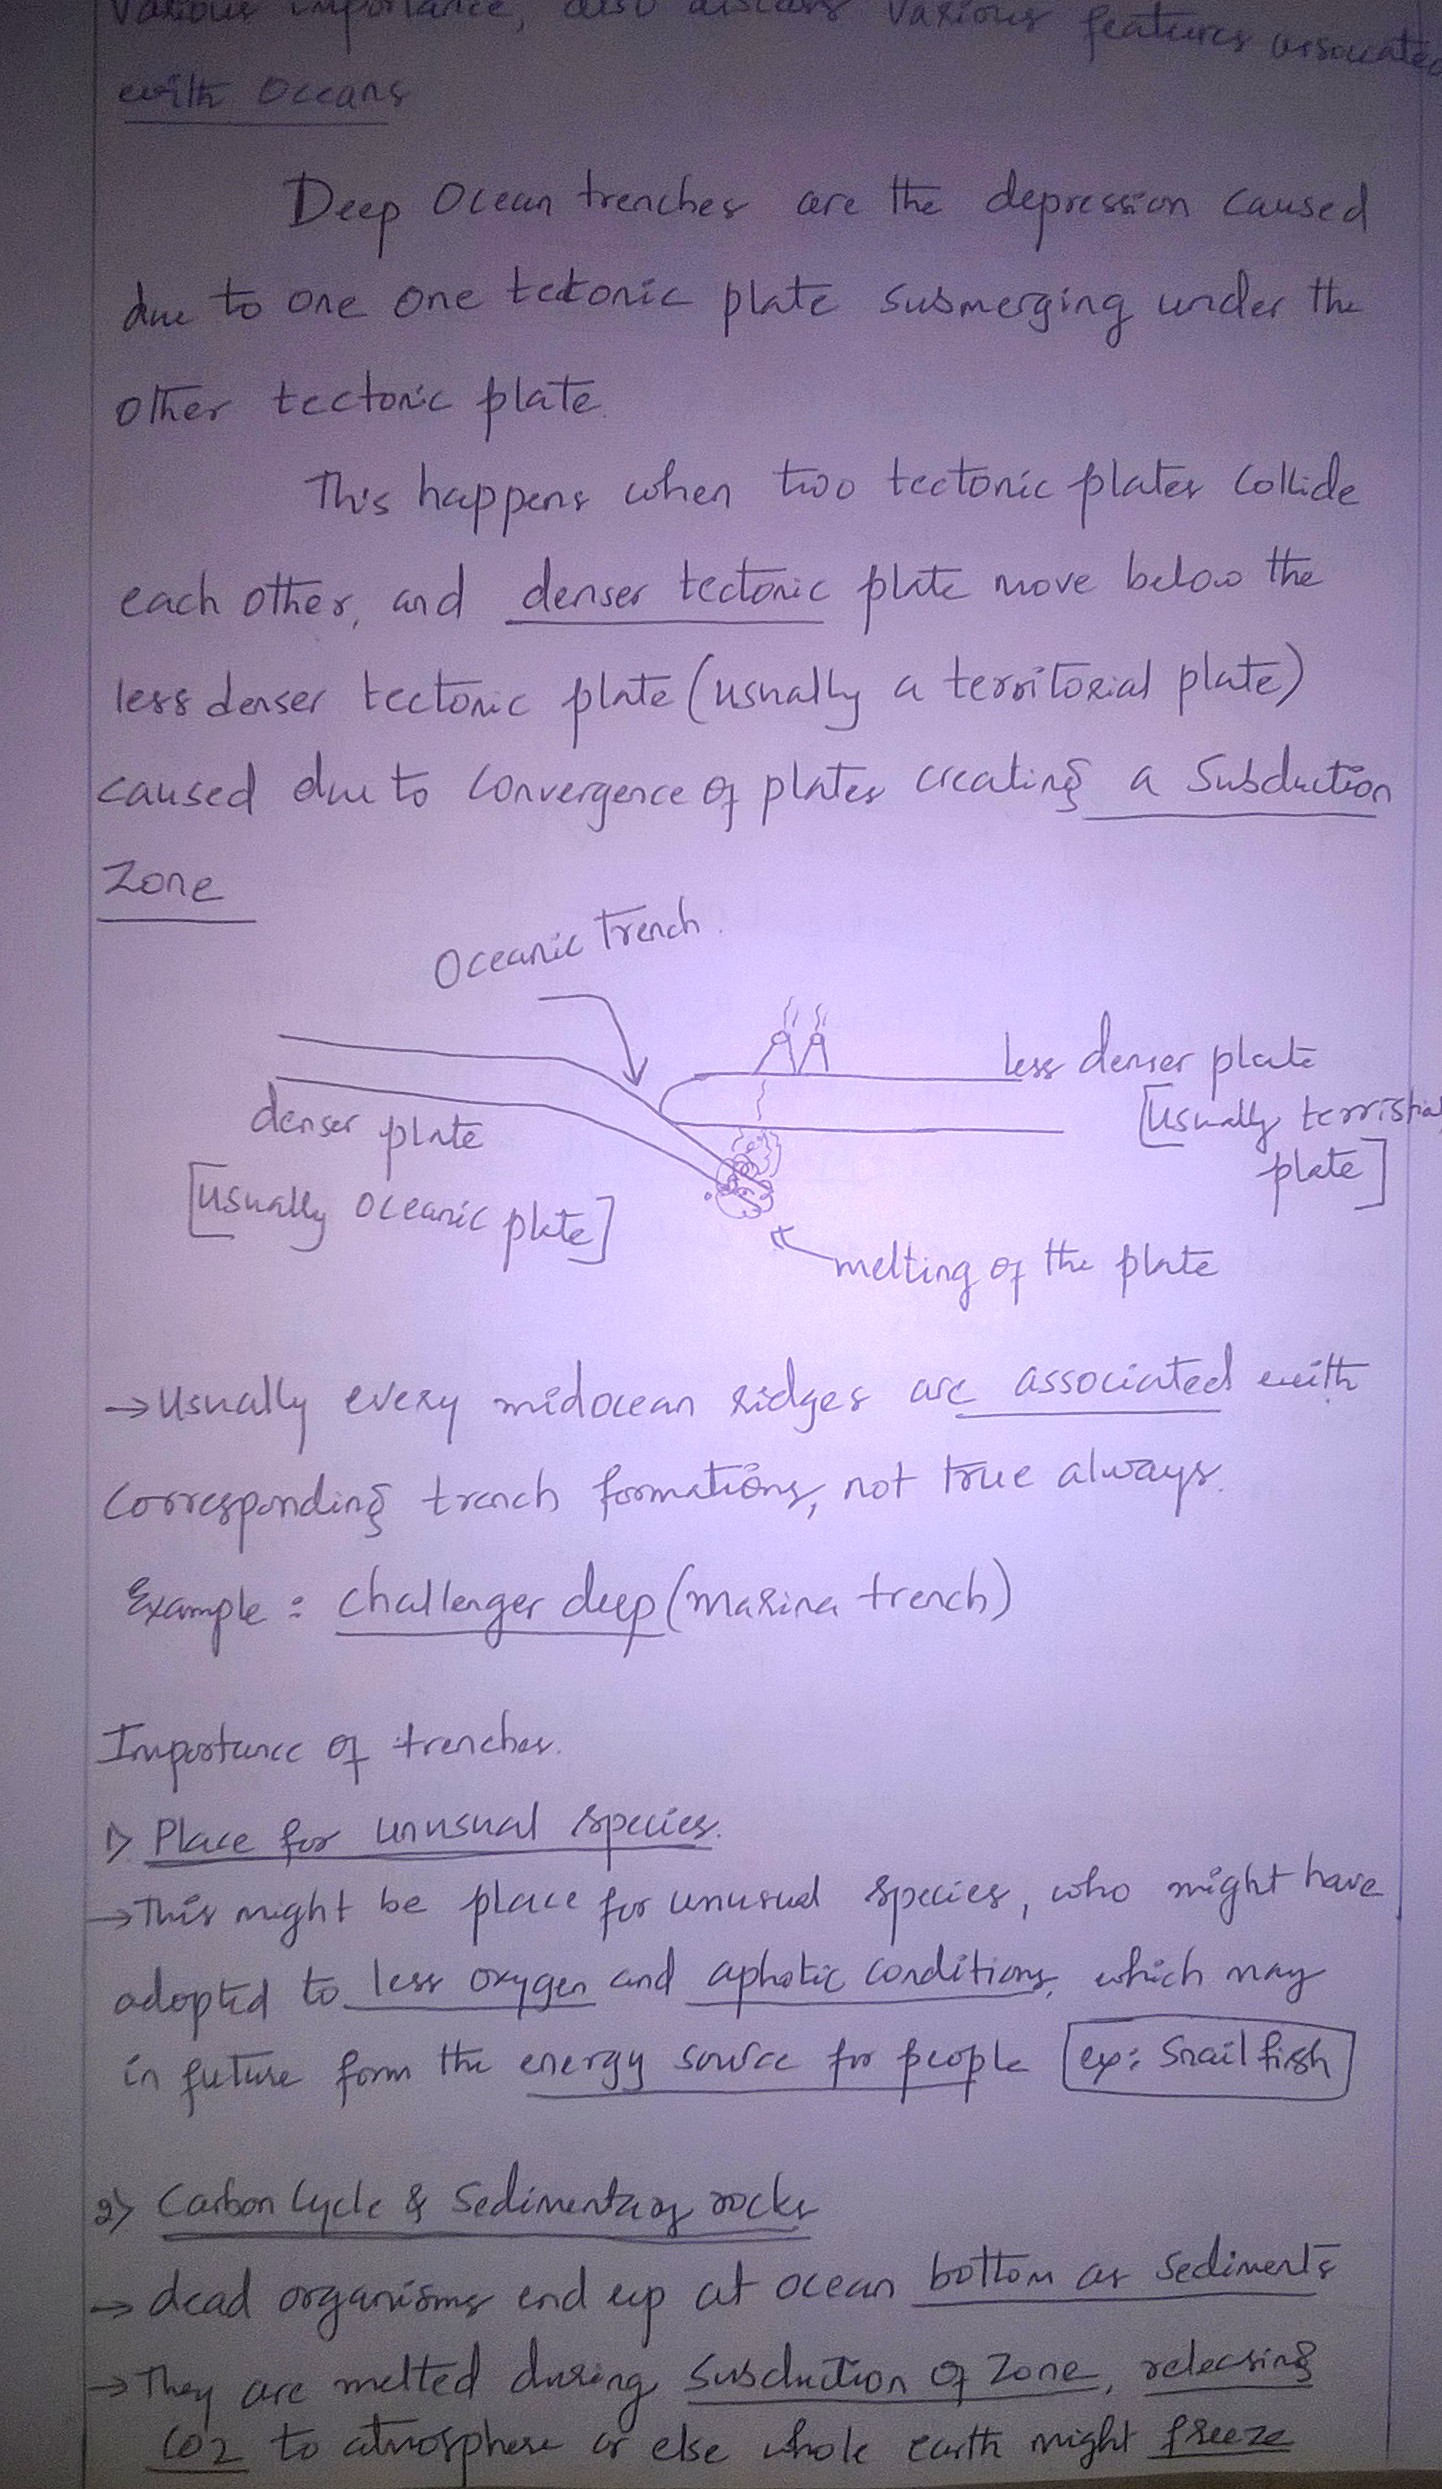 Various importance, also discuss various features associated
with Oceans
Deep Ocean trenches are the depression caused
due to one one tectonic plate submerging under the
other tectonic plate.
This happens when two tectonic plates collide
each other, and denser tectonic plate move below the
less denser tectonic plate (usually a territorial plate)
caused due to convergence of plates creating a Subduction
Zone
Oceanic trench.
less denser plate
denser plate
[usually terristrial
plate]
[usually oceanic plate]
melting of the plate
→ Usually every midocean ridges are associated with
corresponding trench formations, not true always.
Example : challenger deep (marina trench)
Importance of trenches.
1) Place for unusual species.
→ This might be place for unusual species, who might have
adopted to less oxygen and aphotic conditions, which may
in future form the energy source for people [ex: Snail fish]
2) Carbon Cycle & Sedimentary rocks
→ dead organisms end up at ocean bottom as sediments
→ They are melted during Subduction of Zone, releasing
CO2 to atmosphere or else whole earth might freeze